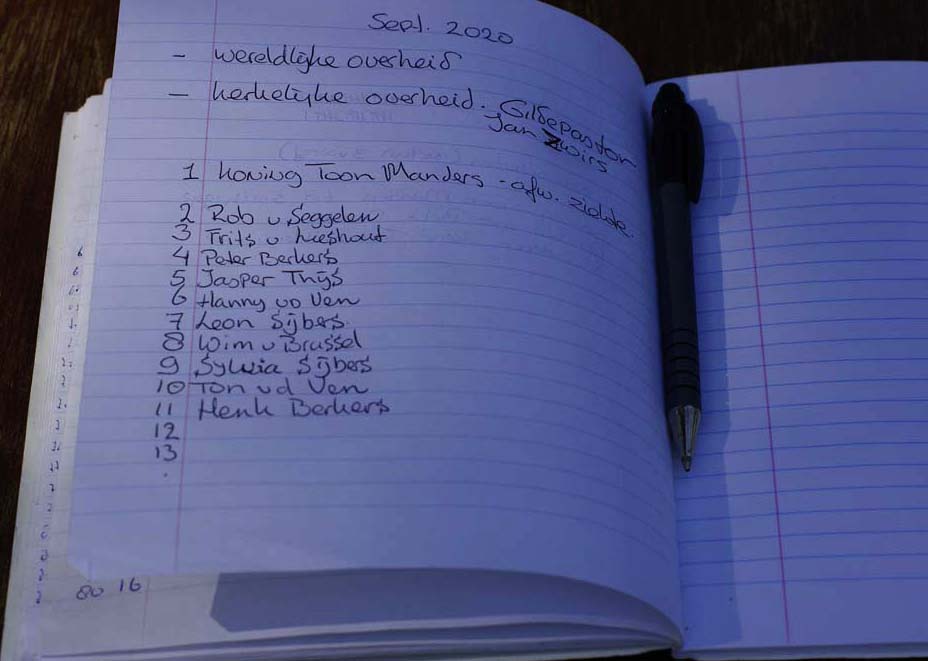 Sept. 2020
- wereldlijke overheid
- kerkelijke overheid. Gildepastor
Jan Zwirs
1 koning Toon Manders - afw. ziekte.
2 Rob v Seggelen
3 Frits v Lieshout
4 Peter Berkers
5 Jasper Thijs
6 Hanny vd Ven
7 Leon Sijbers
8 Wim v Brussel
9 Sylvia Sijbers
10 Ton vd Ven
11 Henk Berkers
12
13
16